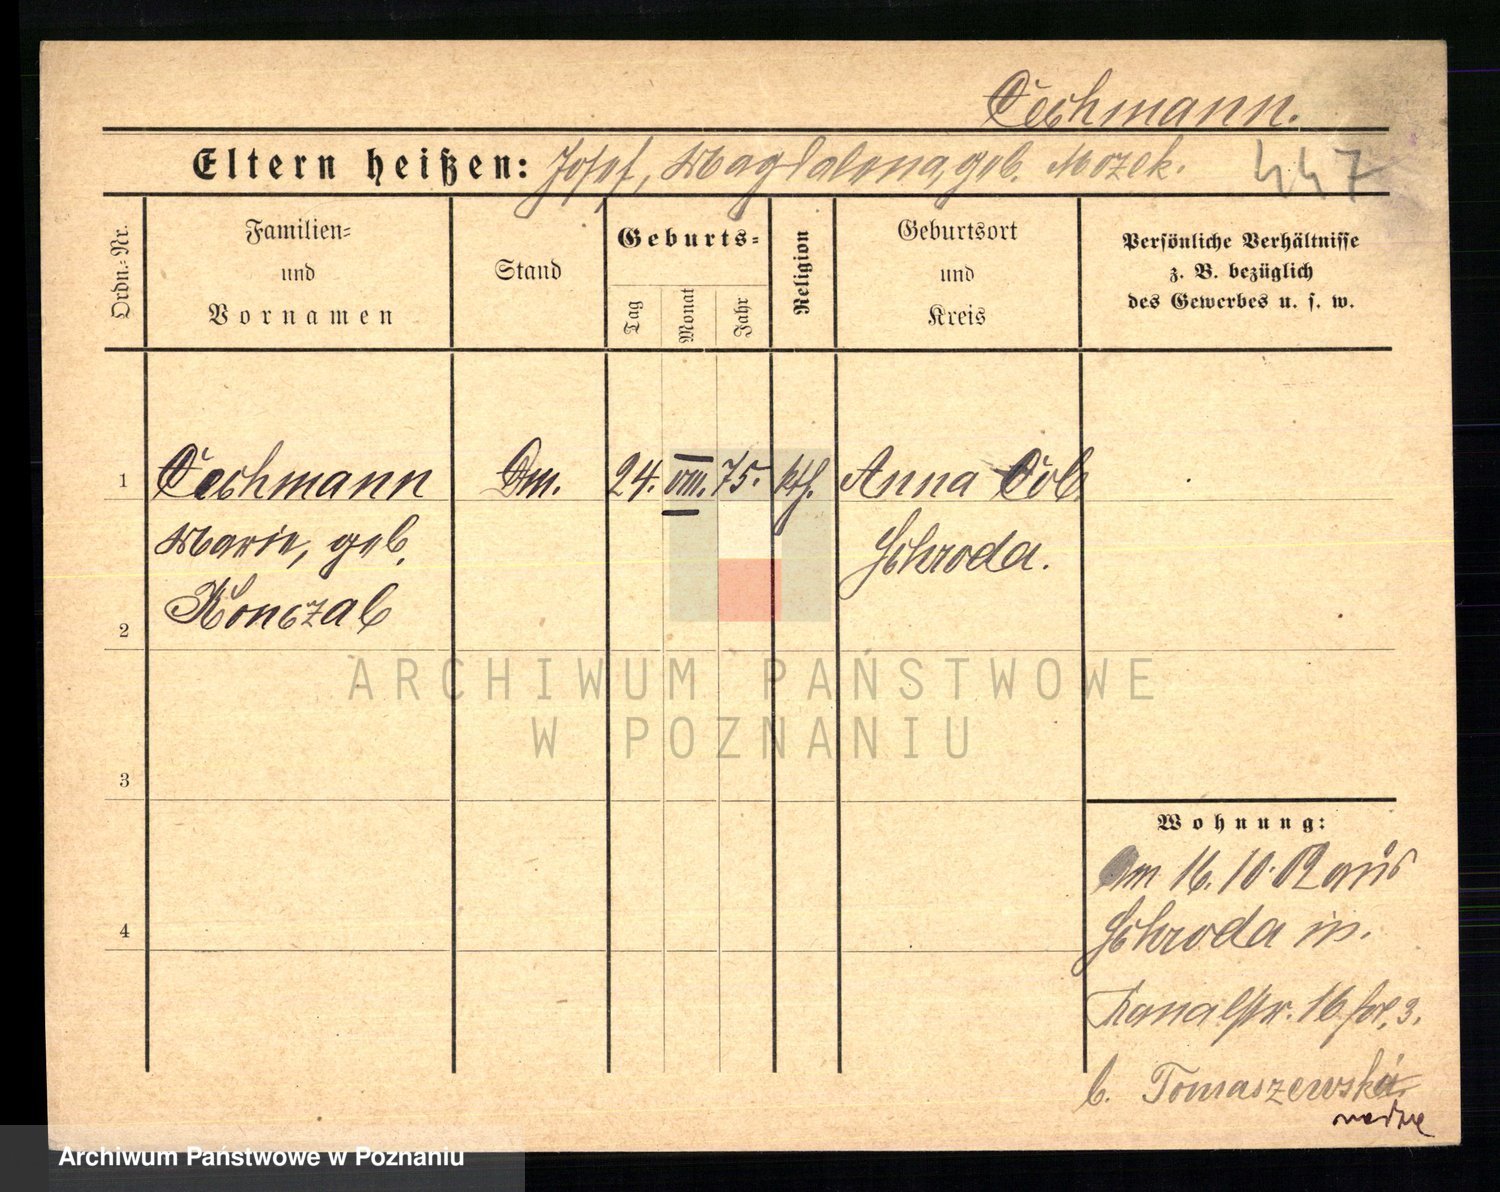 Cechmann.
Eltern heißen: Josef, Magdalena, geb. Mozek.
447
Ordn.-Nr.
Familien-
und
Vornamen
Stand
Geburts-
Tag
Monat
Jahr
Religion
Geburtsort
und
Kreis
Persönliche Verhältnisse
z. B. bezüglich
des Gewerbes u. s. w.
1 Cechmann Dm. 24. VIII. 75. kth. Anna
Marie, geb. Schroda.
Konczal
2
ARCHIWUM PAŃSTWOWE
W POZNANIU
3
4
Wohnung:
Am 16. 10. 02 aus
Schroda in.
Kanalstr. 16 3.
b. Tomaszewski
Archiwum Państwowe w Poznaniu